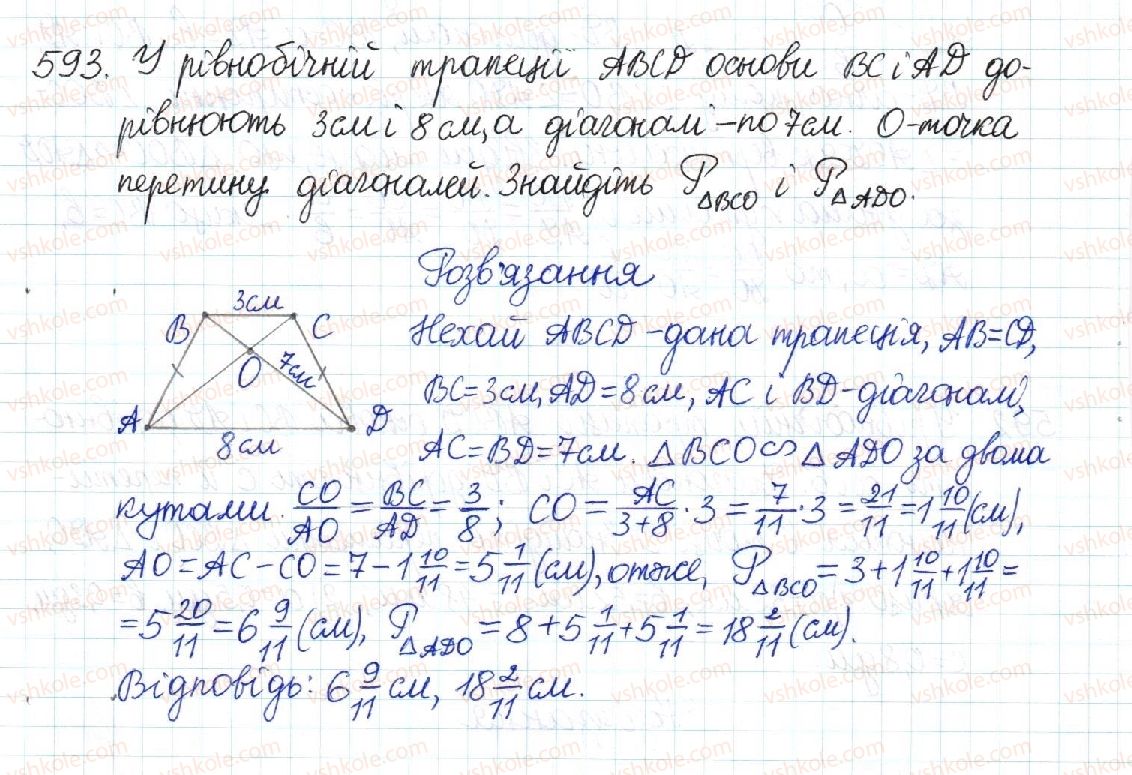 593. У рівнобічній трапеції ABCD основи BC і AD до-
рівнюють 3см і 8см, а діагоналі – по 7см. O-точка
перетину діагоналей. Знайдіть P△BCO і P△ADO.
Розв'язання
3см
B C
O 7см
A D
8см
Нехай ABCD – дана трапеція, AB=CD,
BC=3см, AD=8см, AC і BD – діагоналі,
AC=BD=7см. △BCO∽△ADO за двома
кутами. CO/AO = BC/AD = 3/8; CO = AC/(3+8) · 3 = 7/11 · 3 = 21/11 = 1 10/11 (см),
AO = AC – CO = 7 – 1 10/11 = 5 1/11 (см), отже, P△BCO = 3 + 1 10/11 + 1 10/11 =
= 5 20/11 = 6 9/11 (см), P△ADO = 8 + 5 1/11 + 5 1/11 = 18 2/11 (см).
Відповідь: 6 9/11 см, 18 2/11 см.
vshkole.com